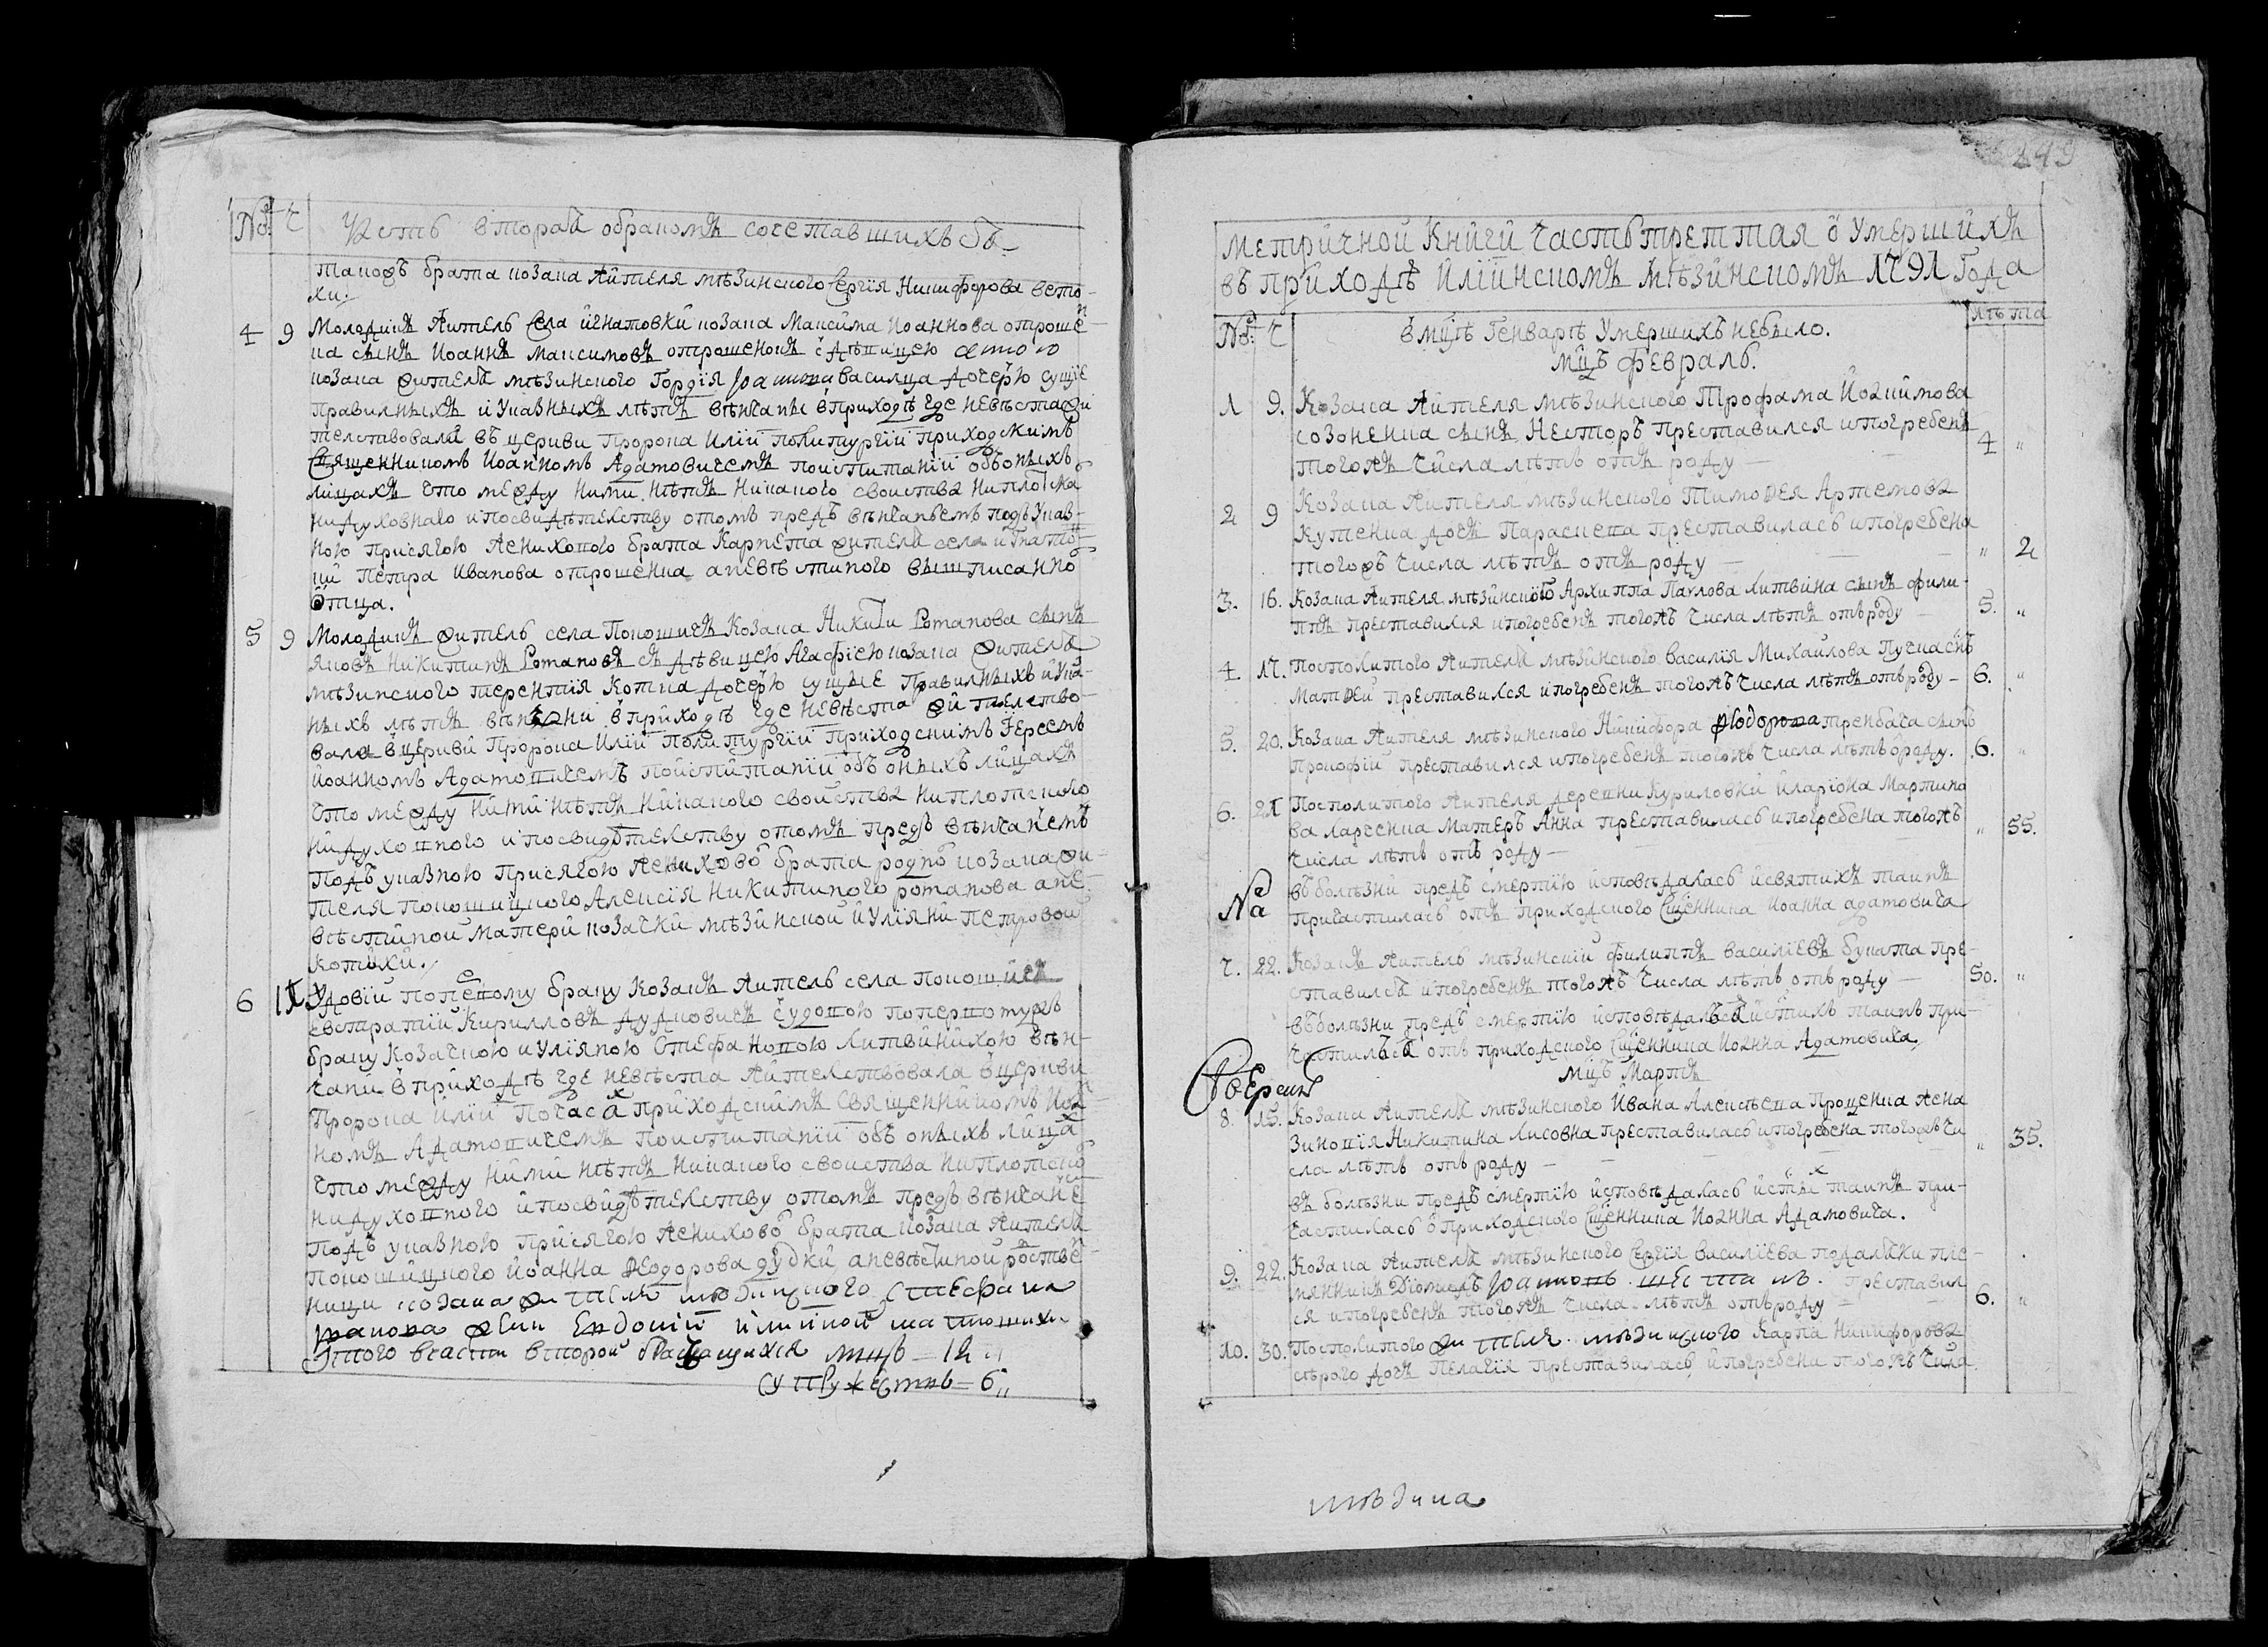 № Ч Часть вторая о бракомъ сочетавшихся
такожъ брата козака жителя мѣзинского Сергія Никифорова вето-
хи.
4 9 Молодикъ житель села игнатовки козака Максима Іоаннова отроше
ка сынъ Иоаннъ Максимовъ отрошенокъ з дѣвицею
козака жителя мѣзинского Гордія Іоаннова Василца дочерю сущіе
правилныхъ и указныхъ лѣтъ вѣнчаны в приходѣ где невѣста жи
телствовала въ церкви Пророка Иліи по литургіи приходскимъ
Священникомъ Иоанномъ Адамовичемъ по испитаніи объ оныхъ
лицахъ что между ними нѣтъ никакого свойства ни плотска
ни духовнаго и по свидѣтелству о томъ предъ вѣнчаніемъ подъ указ-
ною присягою женихового брата жителя села игнатов
ки Петра Иванова отрошенка а невѣстиного вышписанно
отца.
5 9 Молодикъ житель села Покошичъ Козака Никити Романова сынъ
яковъ Никитинъ Романовъ съ дѣвицею Агафіею козака жителя
мѣзинского терентія Котка дочерю сущые правилныхъ и ука
ныхъ лѣтъ вѣнчани в приходѣ где невѣста жителство
вала в церкви Пророка Иліи по литургіи приходскимъ Іереемъ
Иоанномъ Адамовичемъ по испитаніи объ оныхъ лицахъ
что между ними нѣтъ никакого свойства ни плотского
ни духовного и по свидѣтелству о томъ предъ вѣнчаніемъ
подъ указною присягою женихово брата родно козака жи-
теля покошицкого Алексія Никитиного романова а не
вѣстиной матери козачки мѣзинской Иуліяни Петровой
котихи.
6 Удовій по первому браку козакъ житель села покошичъ
Евстратій Кирилловъ Дудковичъ з удовою по первому же
браку козачкою иуліяною Стефановою Литвинихою вѣн-
чани в приходѣ где невѣста жителствовала в церкви
Пророка Иліи по часахъ приходскимъ Священникомъ Иоа
номъ Адамовичемъ по испитаніи объ оныхъ лица
что между ними нѣтъ никакого свойства ни плотско
ни духовного и по свидѣтелству о томъ предъ вѣнчаніе
подъ указною присягою женихово брата козака жителя
покошицкого Иоанна Ѳеодорова дудки а невѣстиной родстве
ници козака жителя мезинского Стефана
жени Евдокіи
Этого части второй брачащихся лицъ — 12
Супружествъ — 6
249
метричной Книги часть треттая о умершихъ
въ приходѣ Иліинскомъ Мѣзинскомъ 1791 года
№ Ч в мцѣ Генварѣ умершихъ небыло. лѣта
мцъ февраль.
1 9. Козака жителя мѣзинского Трофима Иоакимова
созоненка сынъ Несторъ преставился и погребенъ
тогожъ числа лѣтъ отъ роду — 4 "
2 9 Козака жителя мѣзинского Тимоѳея Артемова
Кутенка дочъ Параскева преставилась и погребена
тогожъ числа лѣтъ отъ роду — " 2
3. 16. Козака жителя мѣзинского Архиппа Павлова Литвина сынъ фили-
ппъ преставился и погребенъ тогожъ числа лѣтъ отъ роду 5. "
4. 17. Посполитого жителя мѣзинского василія Михайлова Пугача сынъ
Матѳей преставился и погребенъ тогожъ числа лѣтъ отъ роду — 6. "
5. 20. Козака жителя мѣзинского Никифора Ѳеодорова тренбача сынъ
Прокофій преставился и погребенъ тогожъ числа лѣтъ о роду. 6. "
6. 21 Посполитого жителя деревни Куриловки иларіона Мартино
ва Харченка Матерь Анна преставилась и погребена тогожъ
числа лѣтъ отъ роду — " 55.
въ болѣзни предъ смертію исповѣдалась и святихъ таинъ
причастилась отъ приходского Священника Иоанна Адамовича
7. 22. Козакъ житель мѣзинскій филиппъ василіевъ преставился
и погребенъ тогожъ числа лѣтъ отъ роду — 50. "
въ болѣзни предъ смертію исповѣдался и стихъ таинъ при-
частился отъ приходского Сщенника Иоанна Адамовича,
мцъ Мартъ
8. 15. Козака жителя мѣзинского Ивана Алексѣева Проценка жена
Зиновія Никитина Лисовна преставилась и погребена тогожъ чи
сла лѣтъ отъ роду — " 35.
въ болѣзни предъ смертію исповѣдалась и стыхъ таинъ при-
частилась о приходского Сщенника Иоанна Адамовича.
9. 22. Козака жителя мѣзинского Сергія василіева подалки пле-
мянникъ Діомидъ Іоанновъ преставил
ся и погребенъ тогожъ числа лѣтъ отъ роду — 6. "
10. 30. Посполитого жителя мѣзинского Карпа Никифорова
сѣрого дочъ Пелагія преставилась и погребена тогожъ числа
мѣзина